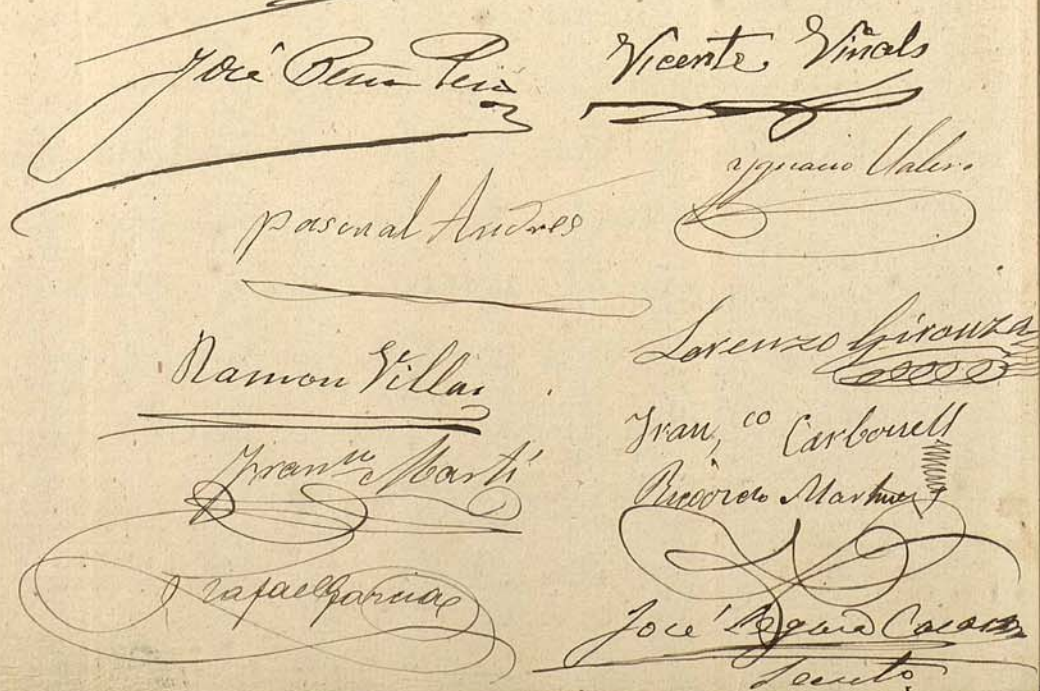 José Peña
Vicente Viñals
Ygnacio Valero
Pascual Andres
Lorenzo Gironza
Ramon Villar
Fran,co Carbonell
Franco Martí
Ricardo Martinez
rafael Garcia
José